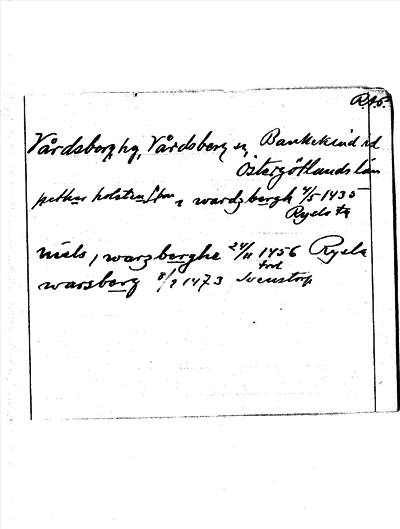 R.A.
Vårdsberg, hg, Vårdsberg sn, Bankekind hd
Östergötlands län
pethær holstensson i wardzbergh 4/5 1435
niels i warzberghe 24/11 1456
warsberg 8/9 1473 Svenstorp